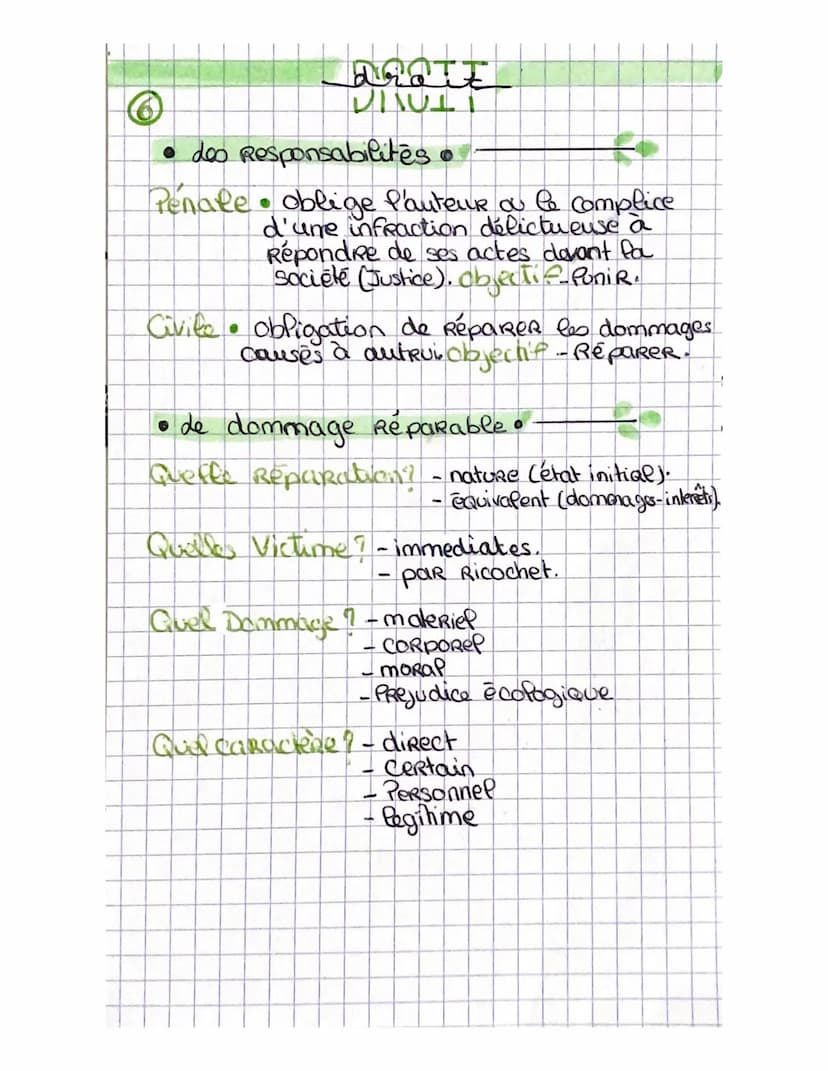 DROIT
droit
6
• des Responsabilités •
Pénale • oblige l'auteur ou le complice
d'une infraction délictueuse à
Répondre de ses actes devant la
société (Justice). objectif - Punir.
Civile • obligation de Réparer les dommages
causés à autrui objectif - Réparer.
• de dommage Réparable •
Quelle Réparation? - nature (état initial).
- équivalent (dommages-interêts).
Quelles Victime? - immediates.
- par Ricochet.
Quel Dommage? - materiel
- corporel
- moral
- Préjudice écologique
Quel caractère? - direct
- certain
- Personnel
- légitime